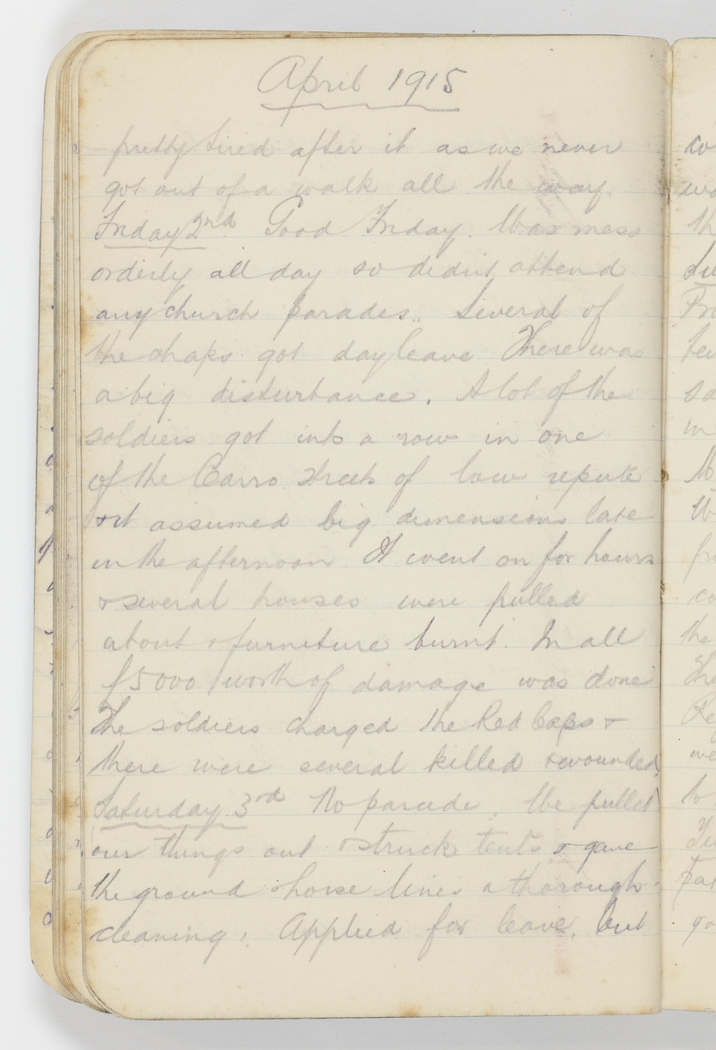 April 1915
pretty tired after it as we never
got out of a walk all the way.
Friday 2nd. Good Friday. Was mess
orderly all day so didnt attend
any church parades. Several of
the chaps got day leave There was
a big disturbance. A lot of the
soldiers got into a row in one
of the Cairo Streets of low repute
& it assumed big dimensions late
in the afternoon. It went on for hours
& several houses were pulled
about & furniture burnt. In all
£5000 worth of damage was done
The soldiers charged the Red Caps &
there were several killed & wounded.
Saturday 3rd No parade. We pulled
our things out & struck tents & gave
the ground & horse lines a thorough
cleaning. Applied for leave, but